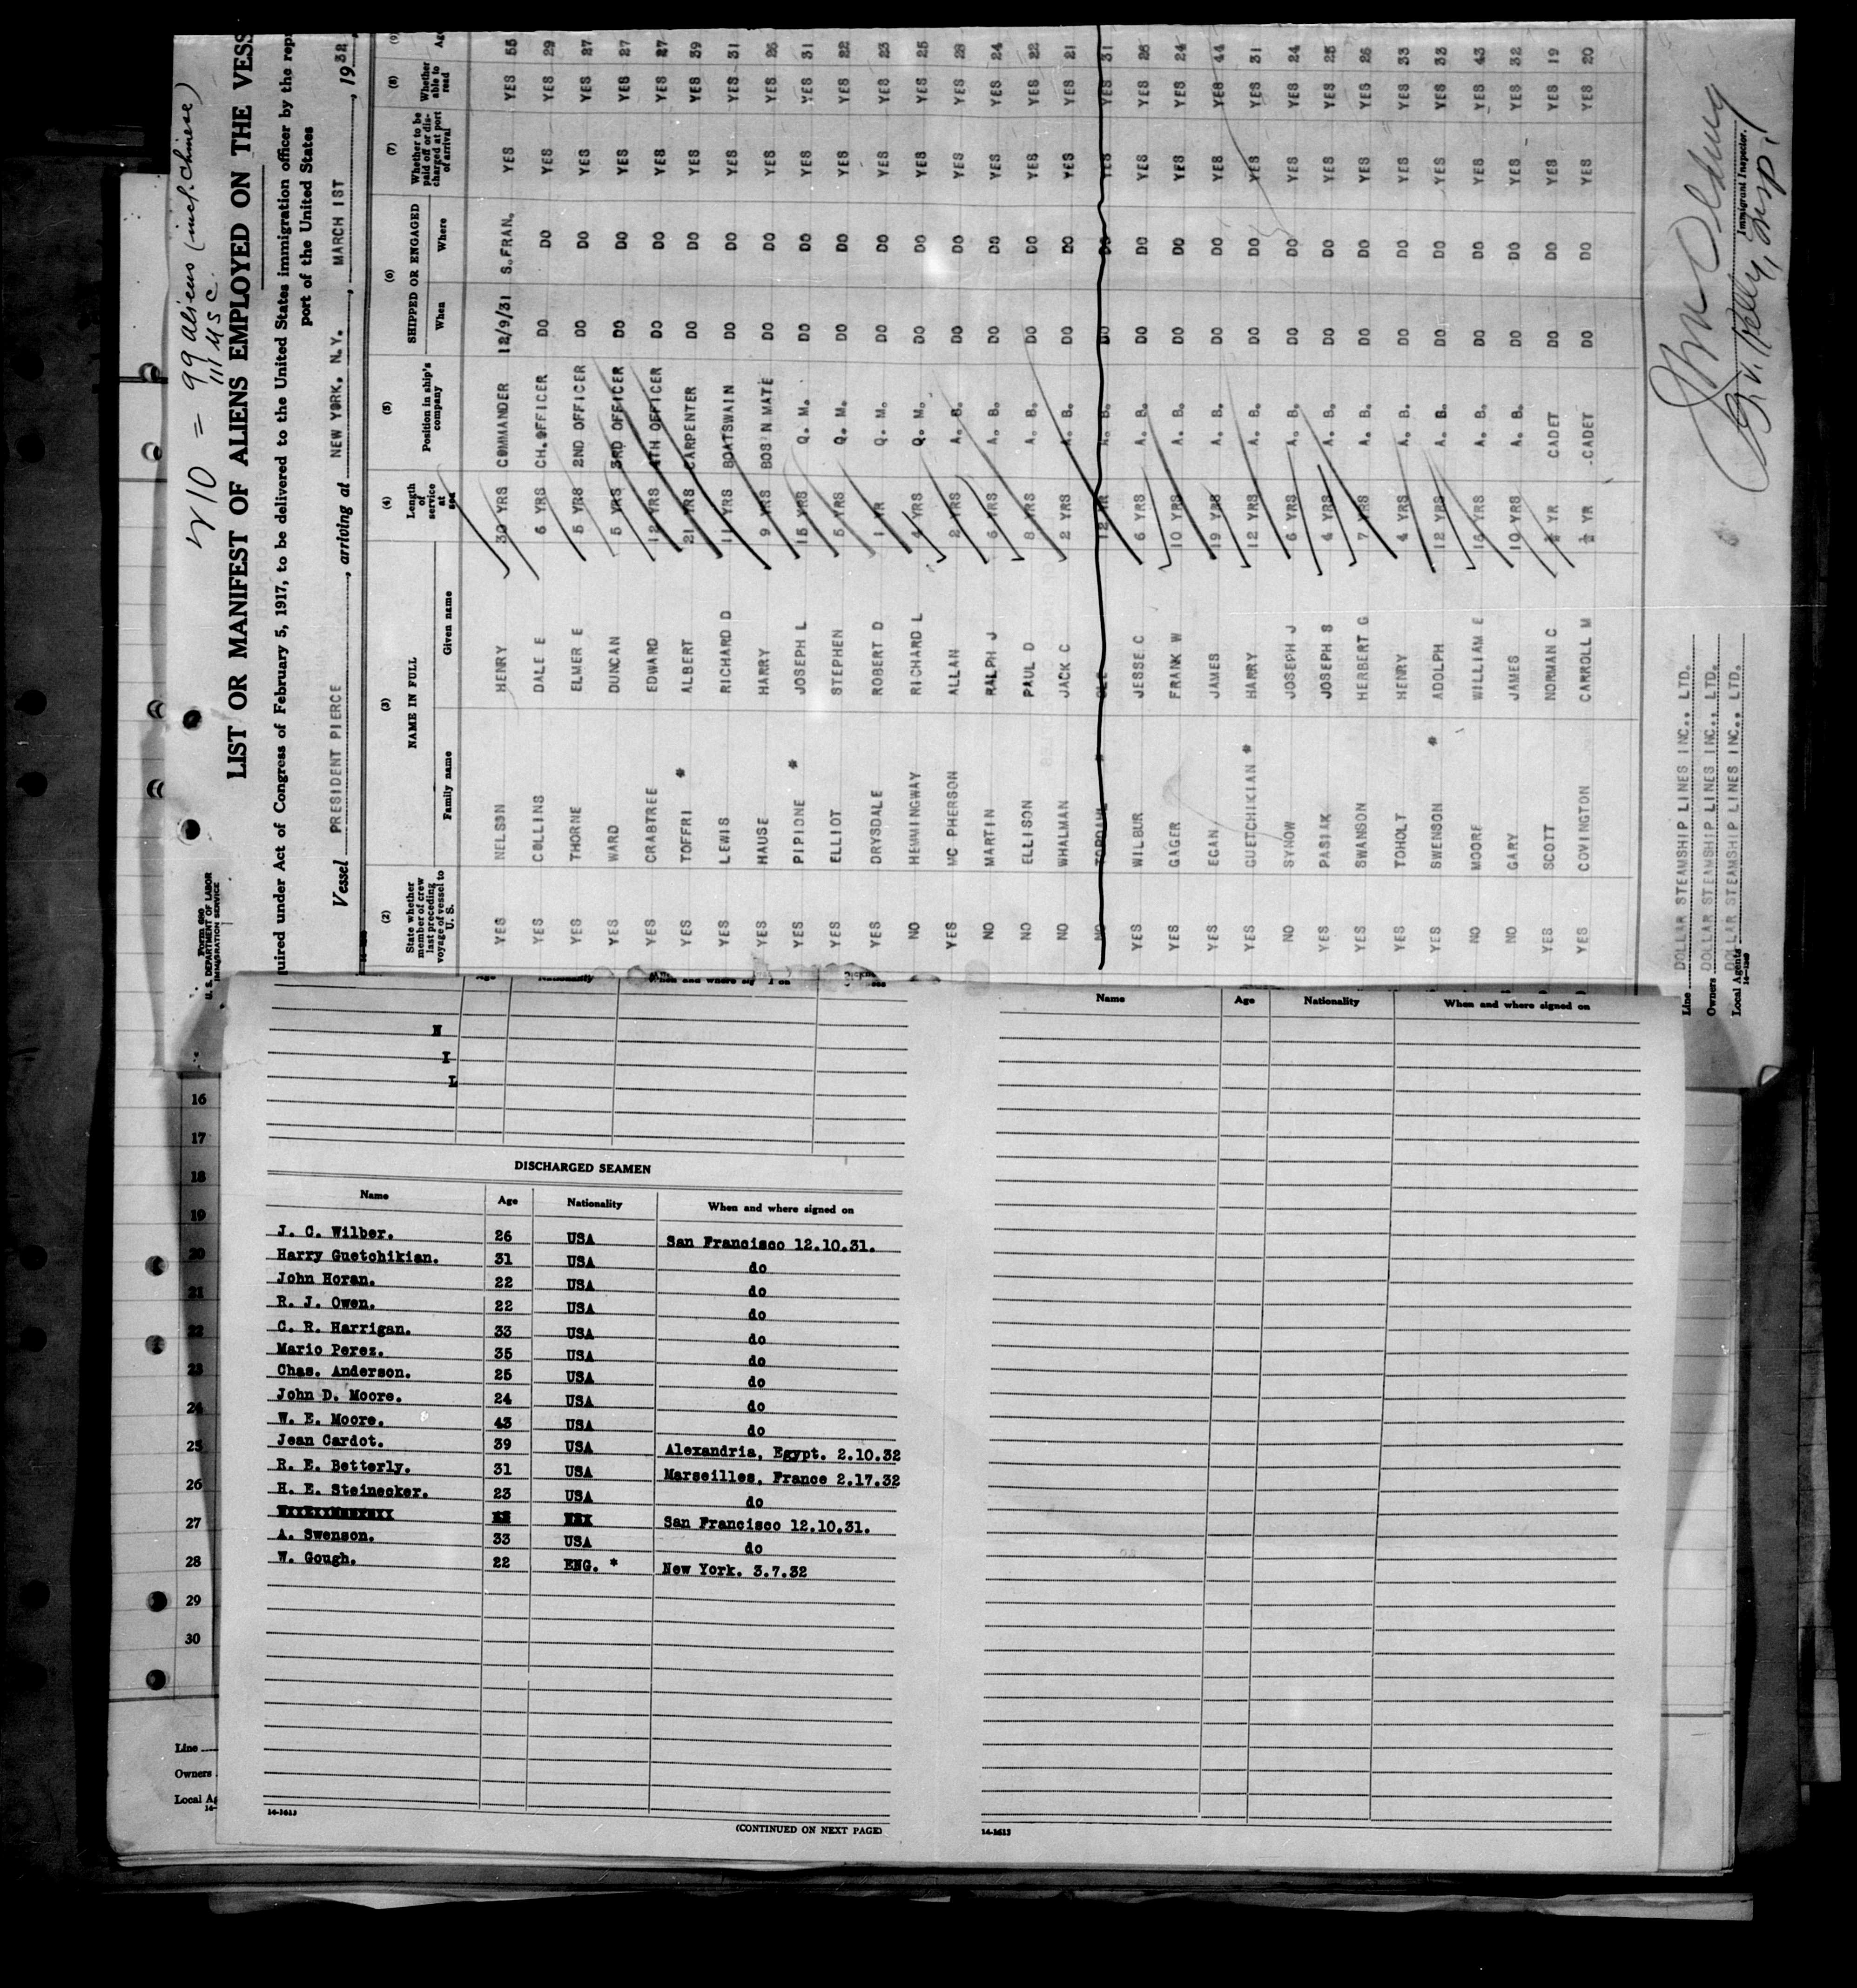 210 = 99 aliens (incl. chinese)
111 USC
Form 680
U. S. DEPARTMENT OF LABOR
IMMIGRATION SERVICE
LIST OR MANIFEST OF ALIENS EMPLOYED ON THE VESS
quired under Act of Congress of February 5, 1917, to be delivered to the United States immigration officer by the repr
port of the United States
Vessel PRESIDENT PIERCE, arriving at NEW YORK. N.Y., MARCH 1ST, 1932
(2) (3) (4) (5) (6) (7) (8) (9)
State whether member of crew last preceding voyage of vessel to U. S. NAME IN FULL Family name Given name Length of service at sea Position in ship's company SHIPPED OR ENGAGED When Where Whether to be paid off or discharged at port of arrival Whether able to read Ag
YES NELSON HENRY 30 YRS COMMANDER 12/9/31 S.FRAN. YES YES 55
YES COLLINS DALE E 6 YRS CH.OFFICER DO DO YES YES 29
YES THORNE ELMER E 5 YRS 2ND OFFICER DO DO YES YES 27
YES WARD DUNCAN 5 YRS 3RD OFFICER DO DO YES YES 27
YES CRABTREE EDWARD 12 YRS 4TH OFFICER DO DO YES YES 27
YES TOFFRI * ALBERT 21 YRS CARPENTER DO DO YES YES 39
YES LEWIS RICHARD D 11 YRS BOATSWAIN DO DO YES YES 31
YES HAUSE HARRY 9 YRS BOS'N MATE DO DO YES YES 26
YES PIPIONE * JOSEPH L 15 YRS Q. M. DO DO YES YES 31
YES ELLIOT STEPHEN 5 YRS Q. M. DO DO YES YES 22
YES DRYSDALE ROBERT D 1 YR Q. M. DO DO YES YES 23
NO HEMMINGWAY RICHARD L 4 YRS Q. M. DO DO YES YES 25
YES MC PHERSON ALLAN 2 YRS A. B. DO DO YES YES 28
NO MARTIN RALPH J 6 YRS A. B. DO DO YES YES 24
NO ELLISON PAUL D 8 YRS A. B. DO DO YES YES 22
NO WHALMAN JACK C 2 YRS A. B. DO DO YES YES 21
NO OLE 12 YR A. B. DO DO YES YES 31
YES WILBUR JESSE C 6 YRS A. B. DO DO YES YES 26
YES GAGER FRANK W 10 YRS A. B. DO DO YES YES 24
YES EGAN JAMES 19 YRS A. B. DO DO YES YES 44
YES GUETCHIKIAN * HARRY 12 YRS A. B. DO DO YES YES 31
NO SYNOW JOSEPH J 6 YRS A. B. DO DO YES YES 24
YES PASIAK JOSEPH S 4 YRS A. B. DO DO YES YES 25
YES SWANSON HERBERT G 7 YRS A. B. DO DO YES YES 26
YES TOHOLT HENRY 4 YRS A. B. DO DO YES YES 33
YES SWENSON * ADOLPH 12 YRS A. B. DO DO YES YES 33
NO MOORE WILLIAM E 15 YRS A. B. DO DO YES YES 43
NO GARY JAMES 10 YRS A. B. DO DO YES YES 32
YES SCOTT NORMAN C ½ YR CADET DO DO YES YES 19
YES COVINGTON CARROLL M ½ YR CADET DO DO YES YES 20
Line DOLLAR STEAMSHIP LINES INC., LTD.
Owners DOLLAR STEAMSHIP LINES INC., LTD.
Local Agents DOLLAR STEAMSHIP LINES INC., LTD.
16—1240
Immigrant Inspector.
Kelly, Insp.
Age Nationality When and where sig on
N
I
L
Name Age Nationality When and where signed on
DISCHARGED SEAMEN
Name Age Nationality When and where signed on
J. C. Wilber. 26 USA San Francisco 12.10.31.
Harry Guetchikian. 31 USA do
John Horan. 22 USA do
R. J. Owen. 22 USA do
C. R. Harrigan. 33 USA do
Mario Perez. 35 USA do
Chas. Anderson. 25 USA do
John D. Moore. 24 USA do
W. E. Moore. 43 USA do
Jean Cardot. 39 USA Alexandria, Egypt. 2.10.32
R. E. Betterly. 31 USA Marseilles, France 2.17.32
H. E. Steinecker. 23 USA do
San Francisco 12.10.31.
A. Swenson. 33 USA do
W. Gough. 22 ENG. * New York. 3.7.32
14-1613
(CONTINUED ON NEXT PAGE)
14-1613
16
17
18
19
20
21
22
23
24
25
26
27
28
29
30
Line
Owners
Local Ag
16—